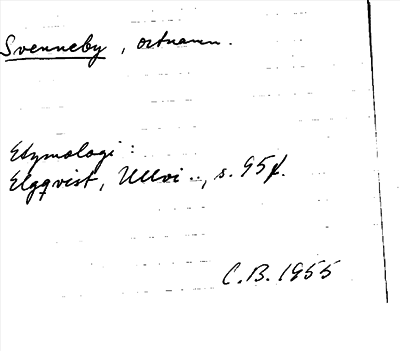 Svenneby, ortnamn.
Etymologi:
Elgqvist, Ullvi.., s. 95f.
C.B. 1955